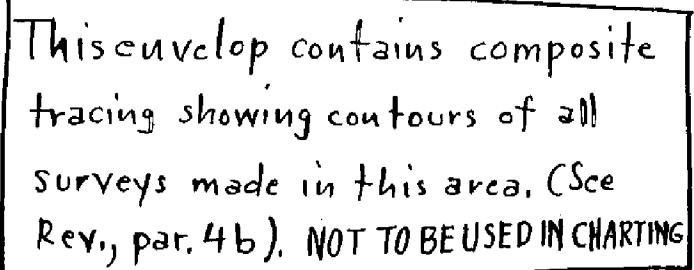 This envelop contains composite
tracing showing contours of all
surveys made in this area. (See
Rev., par. 4b). NOT TO BE USED IN CHARTING